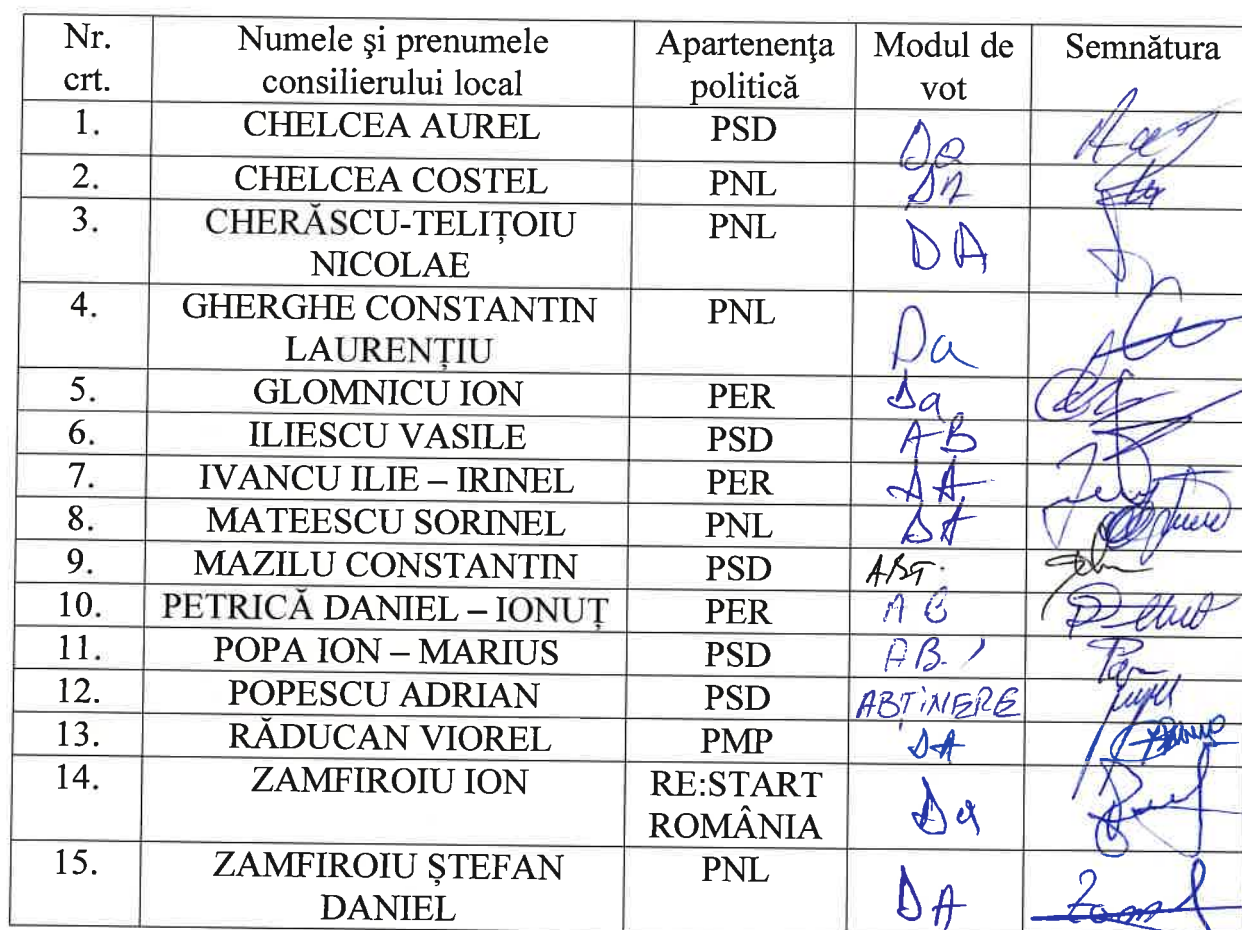 Nr. crt. Numele şi prenumele consilierului local Apartenenţa politică Modul de vot Semnătura
1. CHELCEA AUREL PSD Da
2. CHELCEA COSTEL PNL DA
3. CHERĂSCU-TELIȚOIU NICOLAE PNL DA
4. GHERGHE CONSTANTIN LAURENȚIU PNL Da
5. GLOMNICU ION PER Da
6. ILIESCU VASILE PSD AB
7. IVANCU ILIE – IRINEL PER DA
8. MATEESCU SORINEL PNL DA
9. MAZILU CONSTANTIN PSD ABT.
10. PETRICĂ DANIEL – IONUȚ PER AB
11. POPA ION – MARIUS PSD AB.
12. POPESCU ADRIAN PSD ABȚINERE
13. RĂDUCAN VIOREL PMP DA
14. ZAMFIROIU ION RE:START ROMÂNIA Da
15. ZAMFIROIU ȘTEFAN DANIEL PNL DA